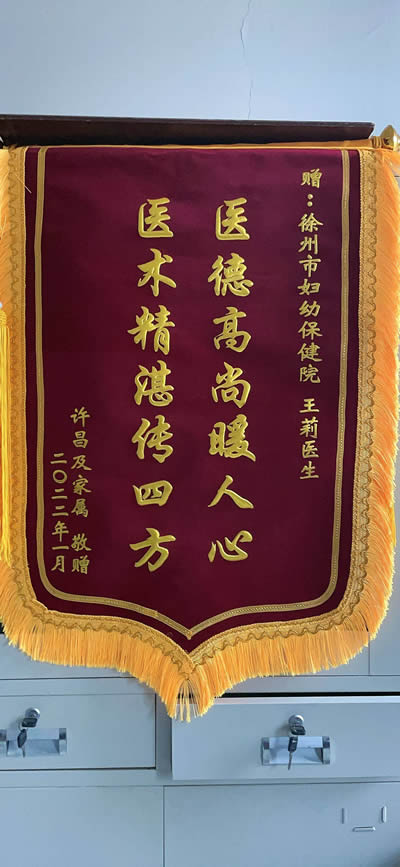 赠：徐州市妇幼保健院 王莉医生
医德高尚暖人心
医术精湛传四方
许昌及家属 敬赠
二〇二二年一月